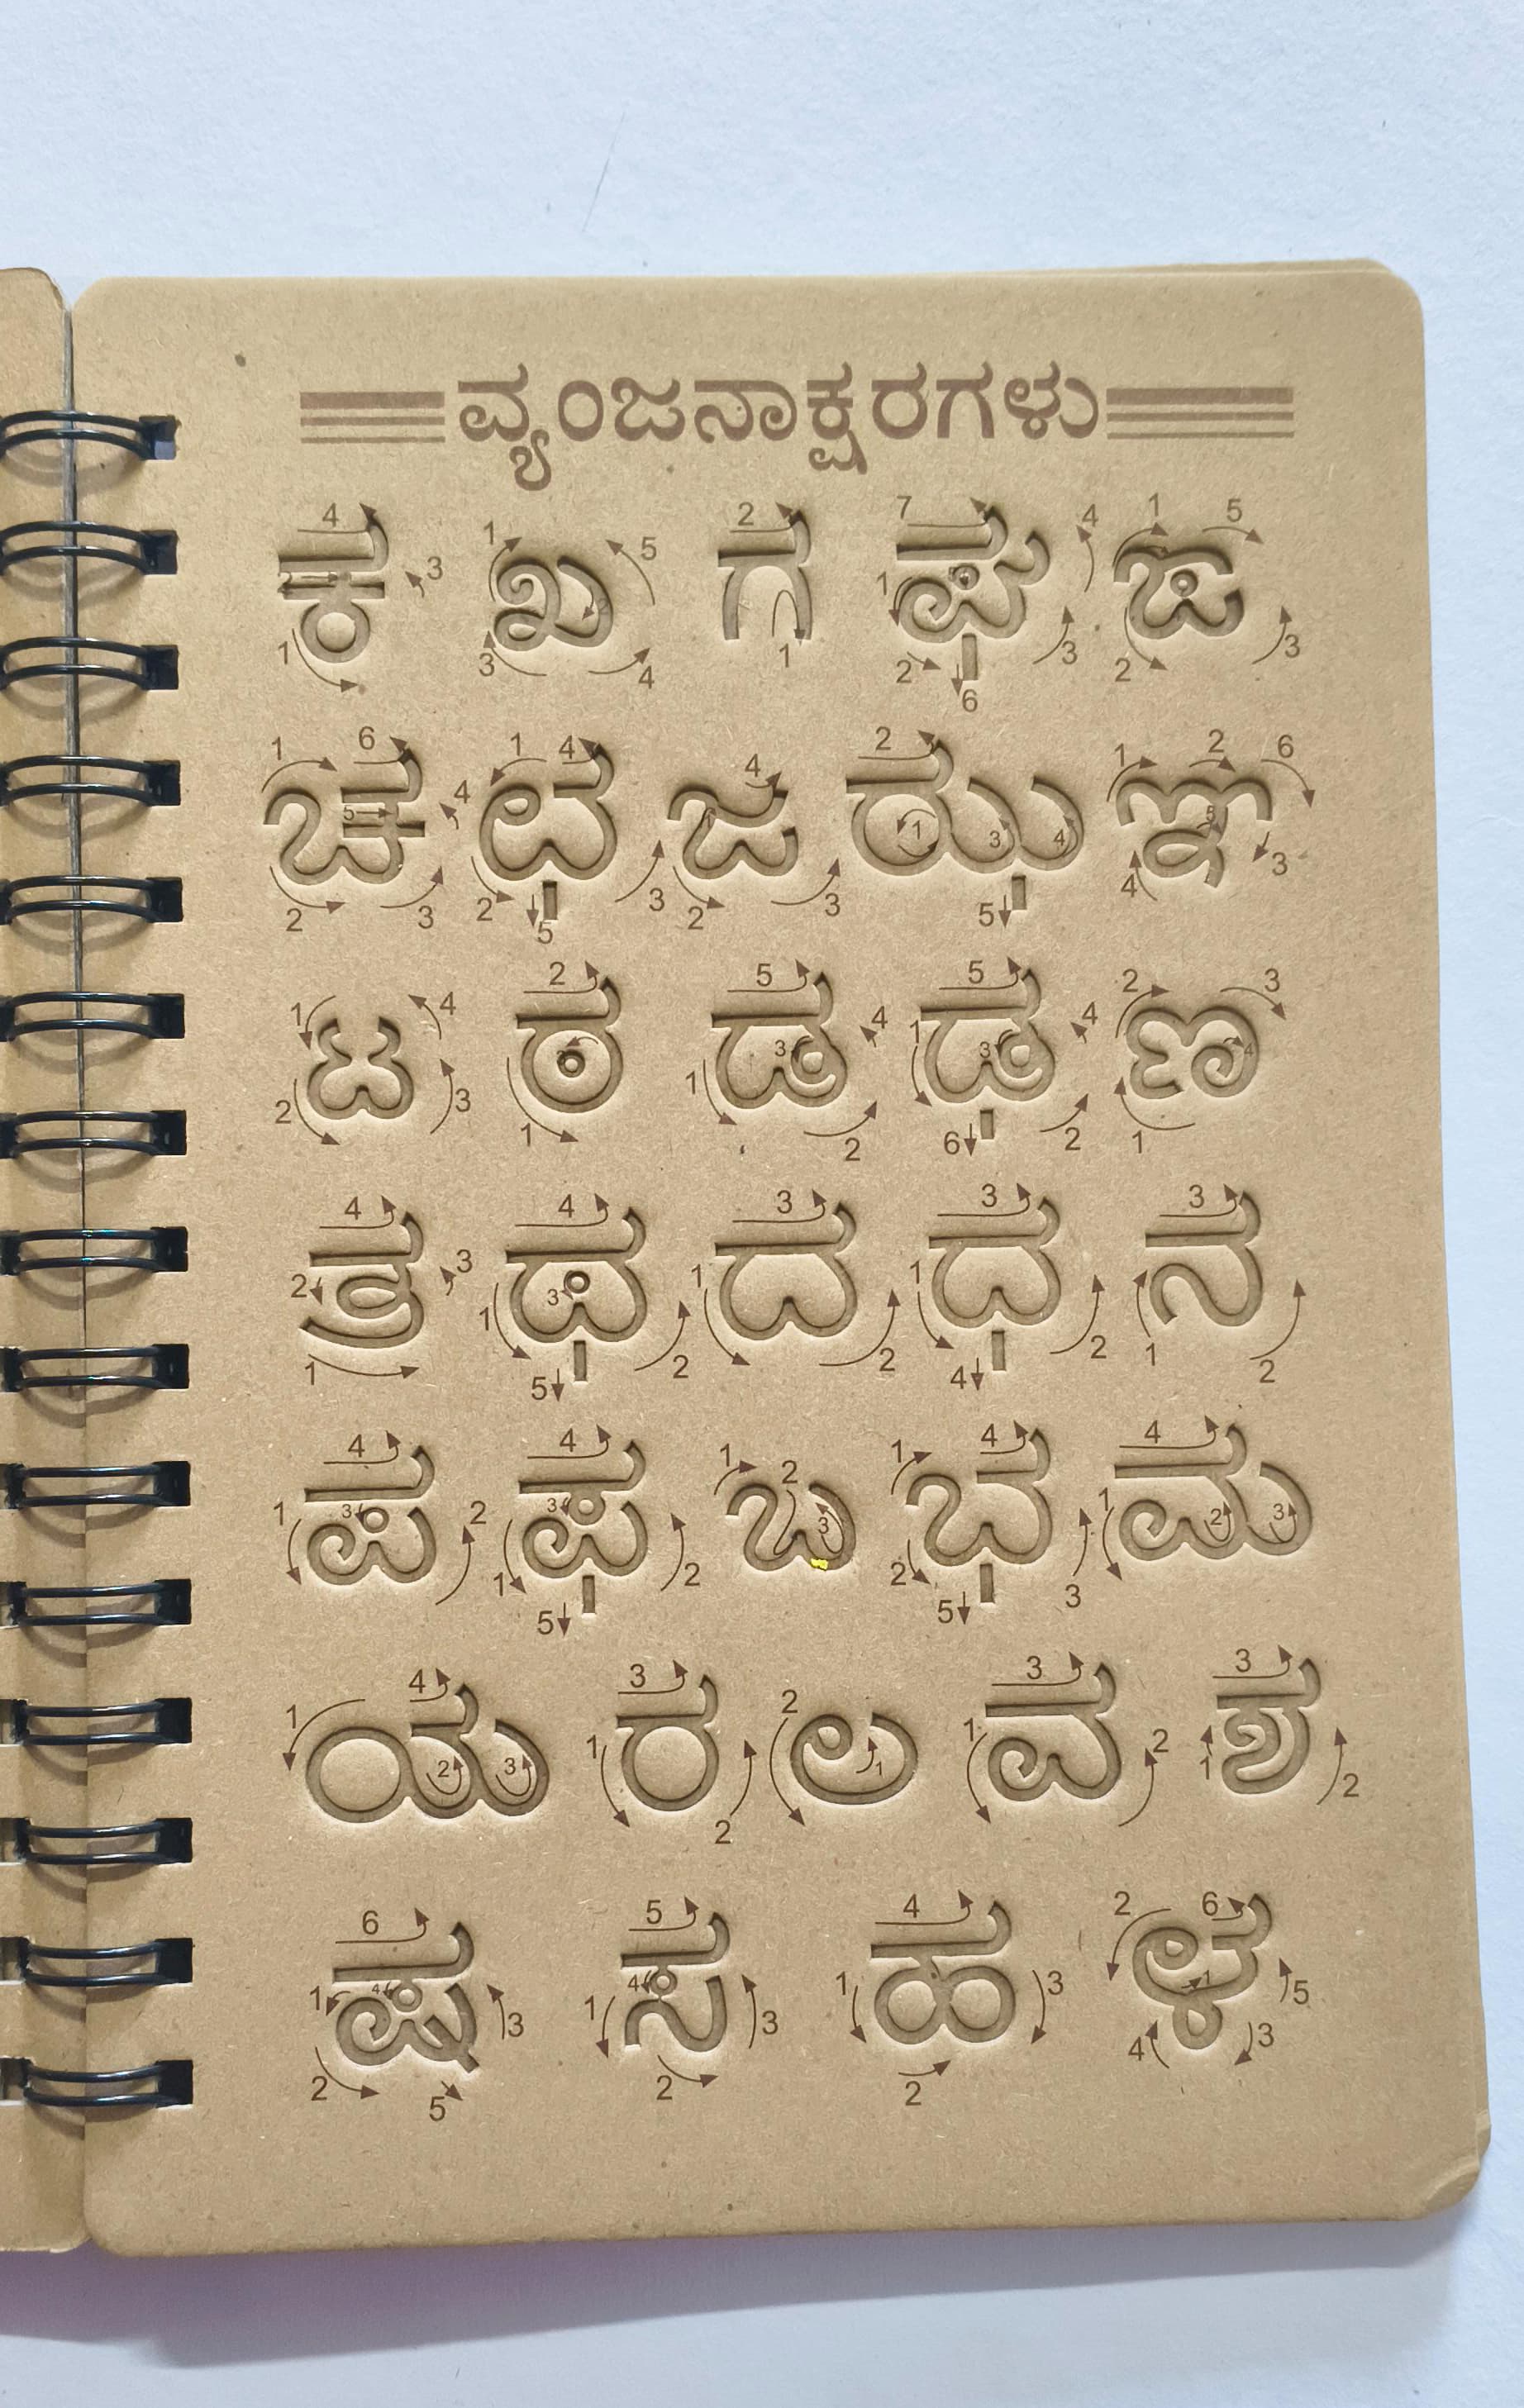 ವ್ಯಂಜನಾಕ್ಷರಗಳು
ಕ ಖ ಗ ಘ ಙ
ಚ ಛ ಜ ಝ ಞ
ಟ ಠ ಡ ಢ ಣ
ತ ಥ ದ ಧ ನ
ಪ ಫ ಬ ಭ ಮ
ಯ ರ ಲ ವ ಶ
ಷ ಸ ಹ ಳ